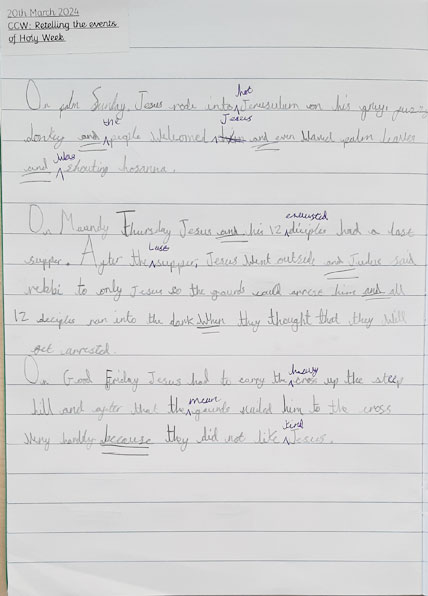 20th March 2024
CCW: Retelling the events
of Holy Week
On palm Sunday, Jesus rode into hot Jerusulem on his gray
donkey and the people welcomed Jesus and even waved palm leaves
and was shouting hosanna.
On Maundy Thursday Jesus and his 12 exausted diciples had a last
supper. After the Last supper, Jesus went outside and Judas said
rebbi to only Jesus so the gaurds could arrest him and all
12 diciples ran into the dark when they thought that they will
get arrested.
On Good Friday Jesus had to carry the heavy cross up the steep
hill and after that the mean gaurds nailed him to the cross
very hardly because they did not like kind Jesus.